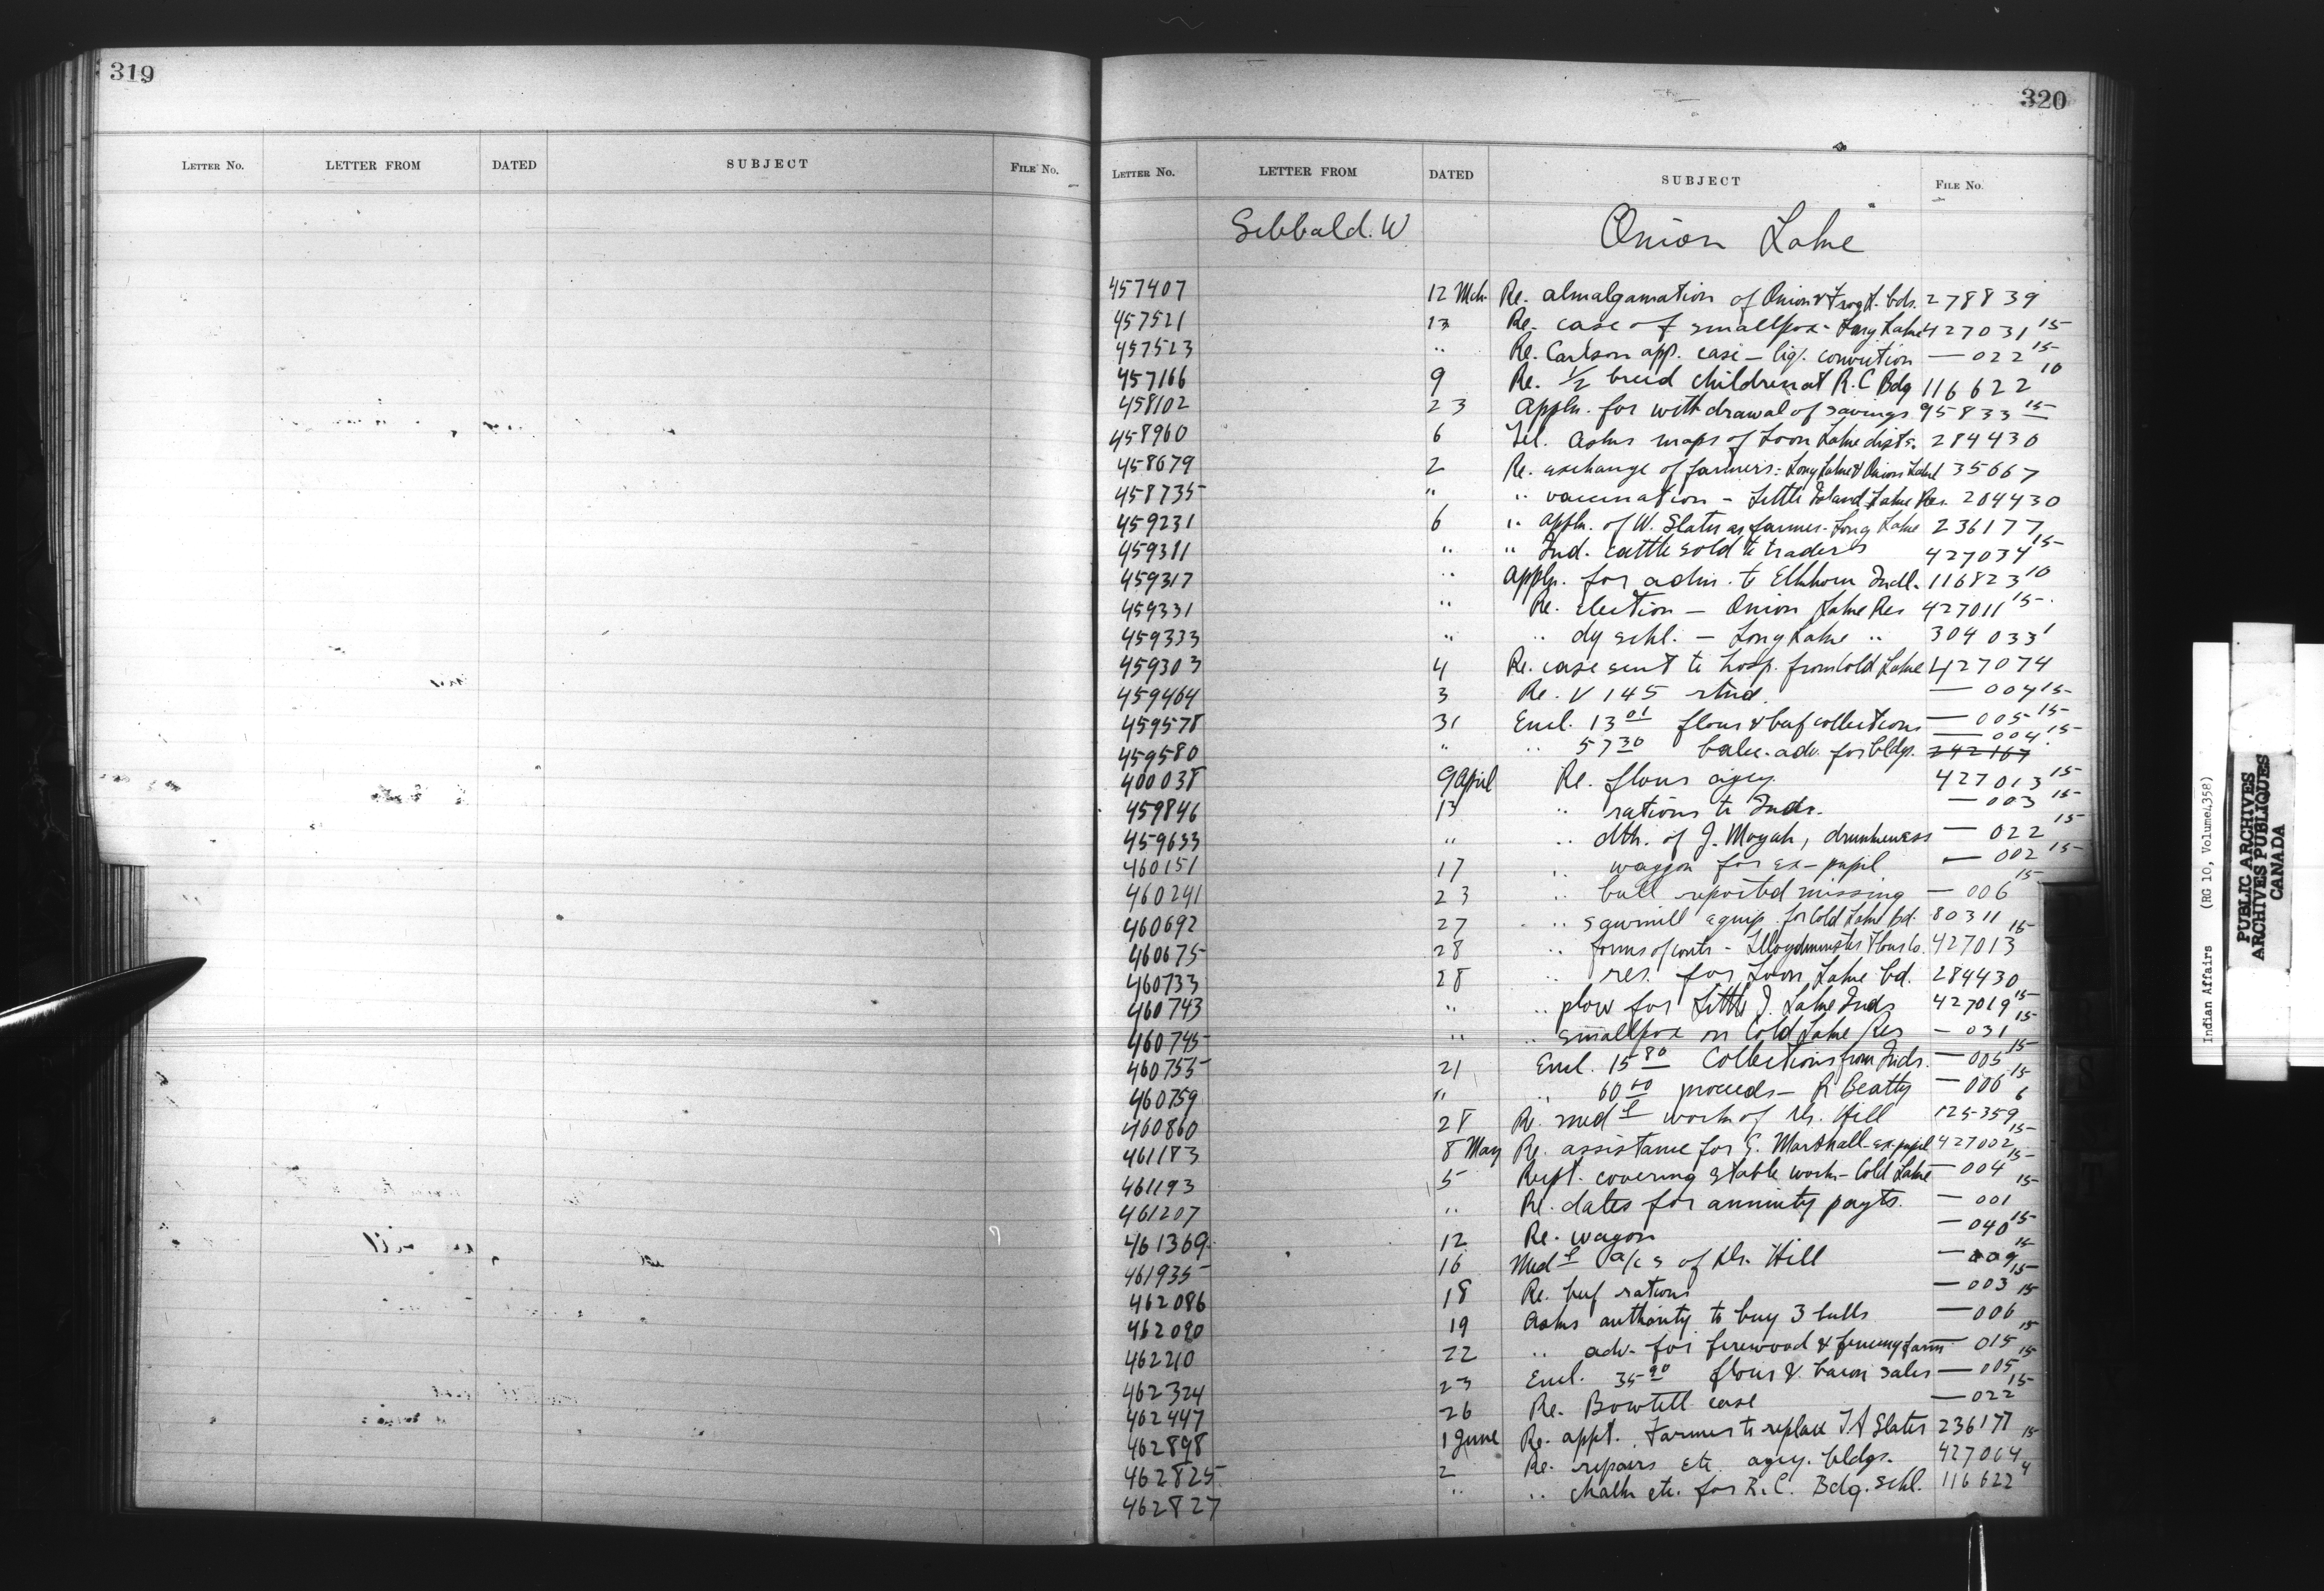 319
LETTER NO. LETTER FROM DATED SUBJECT FILE NO.
320
LETTER NO. LETTER FROM DATED SUBJECT FILE NO.
Sibbald. W Onion Lake
457407 12 Mch. Re. almalgamation of Onion & Frog L. bds. 278839
457521 13 Re. case of smallpox - Long Lake 427031 15
457523 " Re. Carlson app. case - liq. conviction — 022 15
457166 9 Re. 1/2 breed children at R.C Bdg 116622 10
458102 23 Appln. for withdrawal of savings 95833 15
458960 6 Tel. asks maps of Loon Lake dists. 284430
458679 2 Re. exchange of farmers: Long Lake & Onion Lake 135667
458735 " " vaccination - Little Island Lake Res. 204430
459231 6 " appln. of W. Slater as farmer - Long Lake 236177
459311 " " Ind. cattle sold to traders 427034 15
459317 " Appln. for adm. to Elkhorn Indl. 116823 10
459331 " Re. Election - Onion Lake Res 427011 15
459333 " " dy schl. - Long Lake " 304033 1
459303 4 Re. case sent to hosp. from Cold Lake 427074
459464 3 Re. V 145 rtnd. — 004 15
459578 31 Encl. 13 01 flour & beef collections — 005 15
459580 " " 57 30 balce. adv. for bldgs. — 004 15 242167
400038 9 April Re. flour agey. 427013 15
459846 13 " rations to Inds. — 003 15
459633 " " dth. of J. Moyah, drunkeness — 022 15
460151 17 " waggon for ex-pupil — 002 15
460241 23 " bull reported missing — 006 15
460692 27 " sawmill equip. for Cold Lake bd. 80311
460675 28 " forms of contr - Lloydminster Flour Co. 427013 15
460733 28 " res. for Loon Lake bd. 284430
460743 " " plow for Little I. Lake Inds 427019 15
460745 " " smallpox on Cold Lake Res — 031 15
460755 21 Encl. 15 80 Collections from Inds. — 005 15
460759 " " 60 00 proceeds - R Beatty — 006 15
460860 28 Re. medl work of Dr. Hill 125359 6
461183 8 May Re. assistance for G. Marshall - ex-pupil 427002 15
461193 5 Rept. covering stable work - Cold Lake — 004 15
461207 " Re. dates for annuity payts. — 001 15
461369 12 Re. wagon — 040 15
461935 16 Medl a/cs of Dr. Hill — 009 15
462086 18 Re. beef rations — 003 15
462090 19 Asks authority to buy 3 bulls — 006 15
462210 22 " adv. for firewood & fencing farm — 015 15
462324 23 Encl. 35 90 flour & bacon sales — 005 15
462447 26 Re. Bowtell case — 022 15
462898 1 June Re. appt. Farmer to replace T A Slater 236177
462825 2 Re. repairs etc. agey. bldgs. 427064 15
462827 " " chalk etc. for R.C. Bdg. schl. 116622 4
Indian Affairs (RG 10, Volume 4358)
PUBLIC ARCHIVES
ARCHIVES PUBLIQUES
CANADA